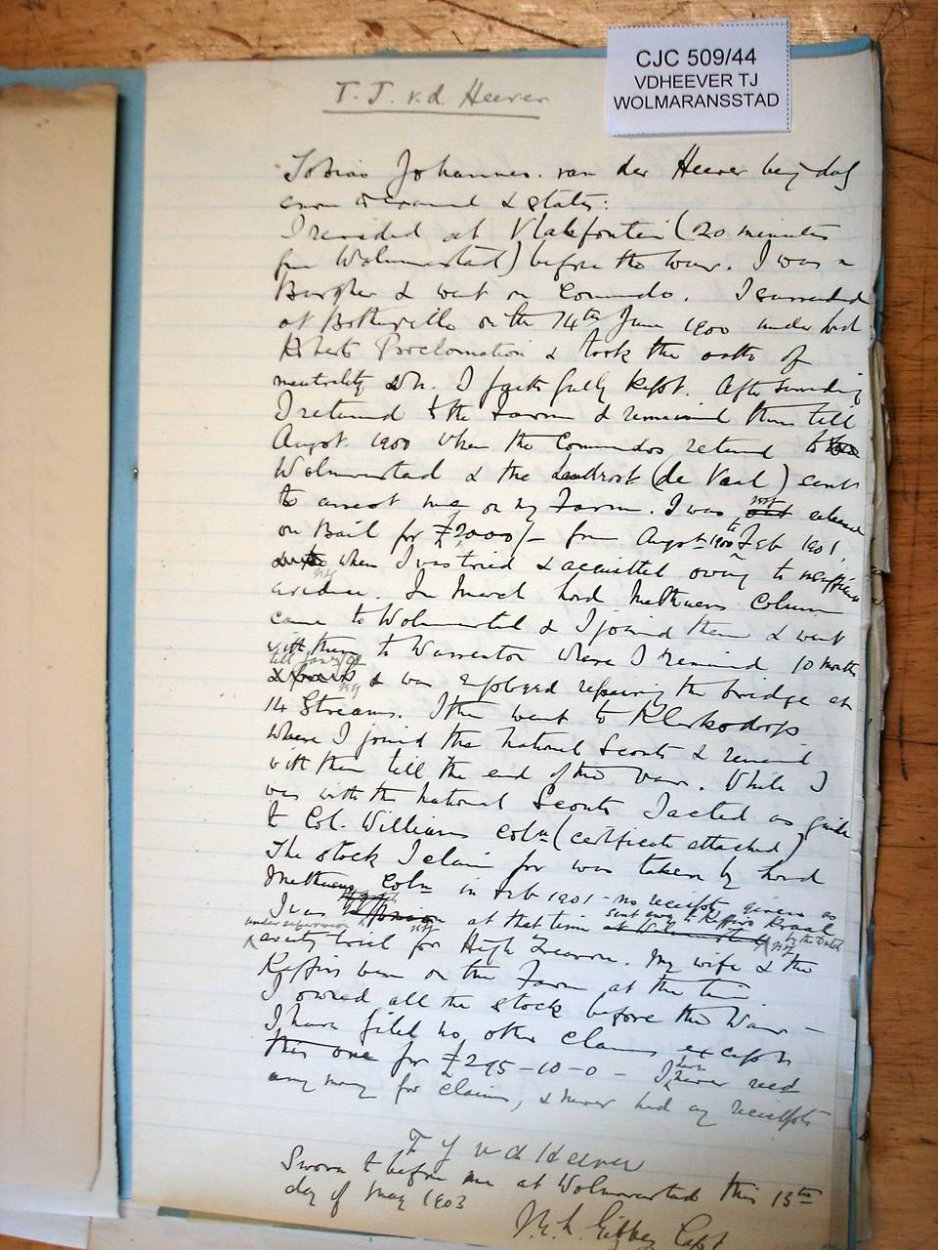 CJC 509/44
VDHEEVER TJ
WOLMARANSSTAD
T. J. v.d Heever
Tobias Johannes van der Heever being duly
sworn & states:
I resided at Vlakfontein (20 minutes
from Wolmarstad) before the war. I was a
Burgher & went on Commando. I surrendered
at Bothaville on the 14th June 1900 under Lord
Roberts Proclamation & took the oath of
neutrality wh. I faithfully kept. After surrendering
I returned to the Farm & remained there till
August 1900 when the Commandos returned to
Wolmarstad & the Landrost (de Vaal) sent
to arrest me on my Farm. I was not released
on Bail for £2000/- from August 1900 to Feb 1901.
when I was tried & acquitted owing to insufficient
evidence. In March Lord Methuens Column
came to Wolmarstad & I joined them & went
with them to Warrenton where I remained 10 months
till Jan & was employed repairing the bridge at
14 Streams. I then went to Klerksdorp
where I joined the National Scouts & remained
with them till the end of the War. While I
was with the National Scouts I acted as guide
to Col. Williams coln (certificate attached)
The stock I claim for was taken by Lord
Methuens Coln in Feb 1901 - no receipts given as
I was at that time sent away to Kaffirs Kraal by the Dutch
under supervision
awaiting trial for High Treason. My wife & the
Kaffirs were on the Farm at the time.
I owned all the stock before the War -
I have filed no other claims except
this one for £295-10-0 - I have never recd
any money for claims, & never had any receipts
T J v d Heever
Sworn to before me at Wolmarstad this 13th
day of May 1903
Capt